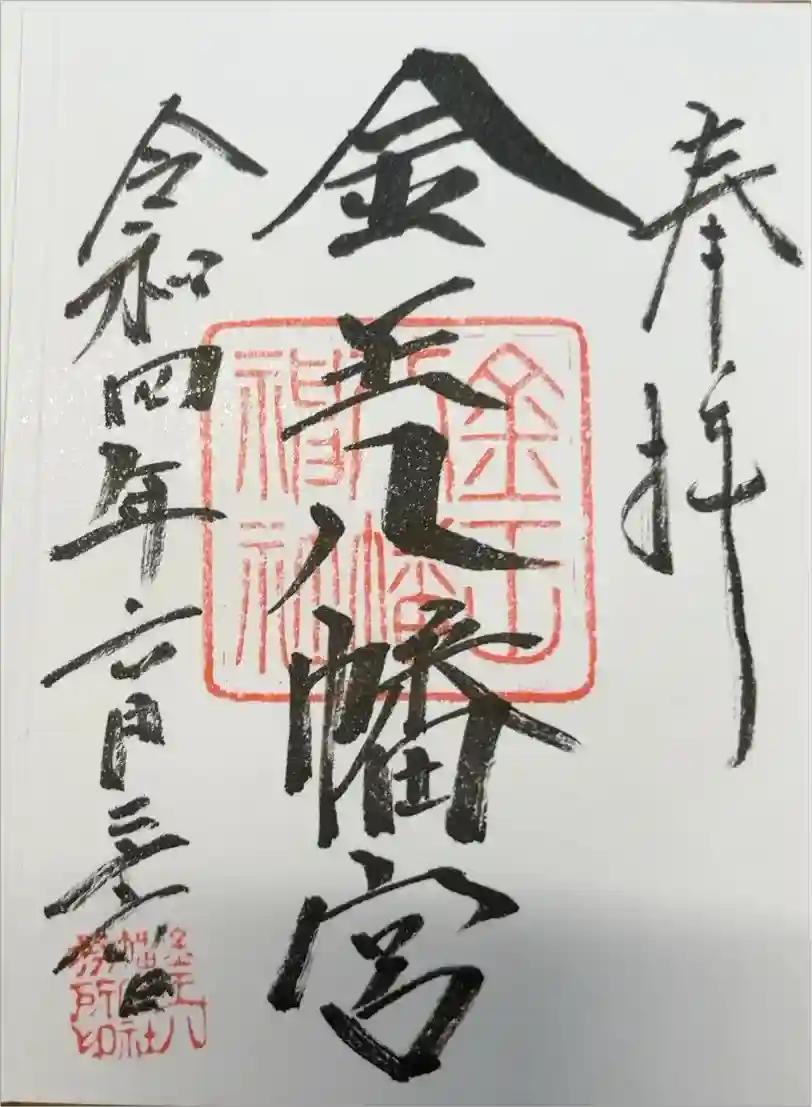 奉拝
金王八幡宮
金王
八幡
神社
令和四年六月日
金王八
幡神社
務所印